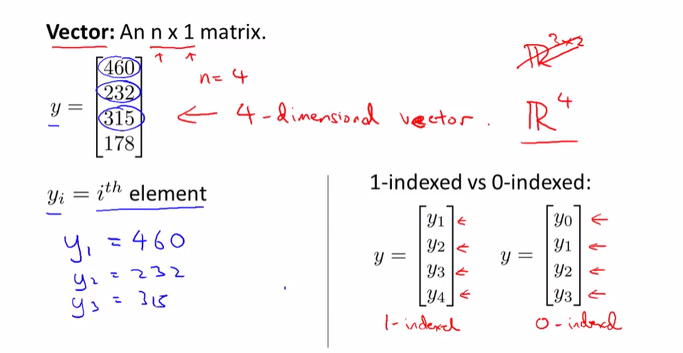 Vector: An n x 1 matrix.
ℝ³ˣ²
n = 4
y = [460
232
315
178]
← 4-dimensional vector.
ℝ⁴
yᵢ = iᵗʰ element
y₁ = 460
y₂ = 232
y₃ = 315
1-indexed vs 0-indexed:
y = [y₁ y₂ y₃ y₄] y = [y₀ y₁ y₂ y₃]
1-indexed 0-indexed